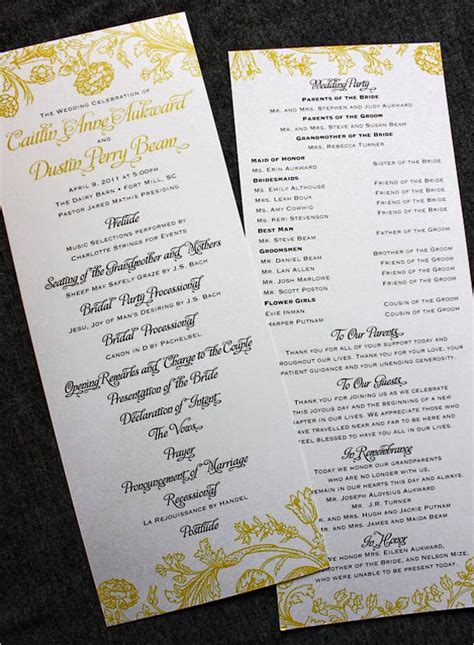 The Wedding Celebration of
Caitlin Anne Aukward
and
Dustin Perry Beam
April 9, 2011 at 5:00pm
The Dairy Barn • Fort Mill, SC
Pastor Jared Mathis Presiding
Prelude
Music Selections performed by
Charlotte Strings for Events
Seating of the Grandmother and Mothers
Sheep May Safely Graze by J.S. Bach
Bridal Party Processional
Jesu, Joy of Man's Desiring by J.S. Bach
Bridal Processional
Canon in D by Pachelbel
Opening Remarks and Charge to the Couple
Presentation of the Bride
Declaration of Intent
The Vows
Prayer
Pronouncement of Marriage
Recessional
La Rejouissance by Handel
Postlude
Wedding Party
Parents of the Bride
Mr. and Mrs. Stephen and Judy Aukward
Parents of the Groom
Mr. and Mrs. Steve and Susan Beam
Grandmother of the Bride
Mrs. Rebecca Turner
Maid of Honor
Ms. Erin Aukward Sister of the Bride
Bridesmaids
Ms. Emily Althouse Friend of the Bride
Ms. Leah Boug Friend of the Bride
Ms. Amy Cowhig Friend of the Bride
Ms. Keri Stevenson Friend of the Bride
Best Man
Mr. Steve Beam Father of the Groom
Groomsmen
Mr. Daniel Beam Brother of the Groom
Mr. Lan Allen Friend of the Groom
Mr. Josh Marlowe Friend of the Groom
Mr. Scott Poston Friend of the Groom
Flower Girls
Evie Inman Cousin of the Groom
Harper Putnam Cousin of the Groom
To Our Parents
Thank you for all of your support today and
throughout our lives. Thank you for your love,
patient guidance and your unending generosity.
To Our Guests
Thank you for joining us as we celebrate
this joyous day and the beginning of a new
chapter in our lives. We appreciate those who
have travelled near and far to be here and
feel blessed to have you all in our lives.
In Remembrance
Today we honor our grandparents
who are no longer with us.
Mr. Joseph Aloysius Aukward
Mr. J.R. Turner
Mr. and Mrs. Hugh and Jackie Putnam
Mr. and Mrs. James and Maida Beam
In Honor
We honor Mrs. Eileen Aukward,
Mother of the Bride, and Nelson Mize,
who were unable to be present today.